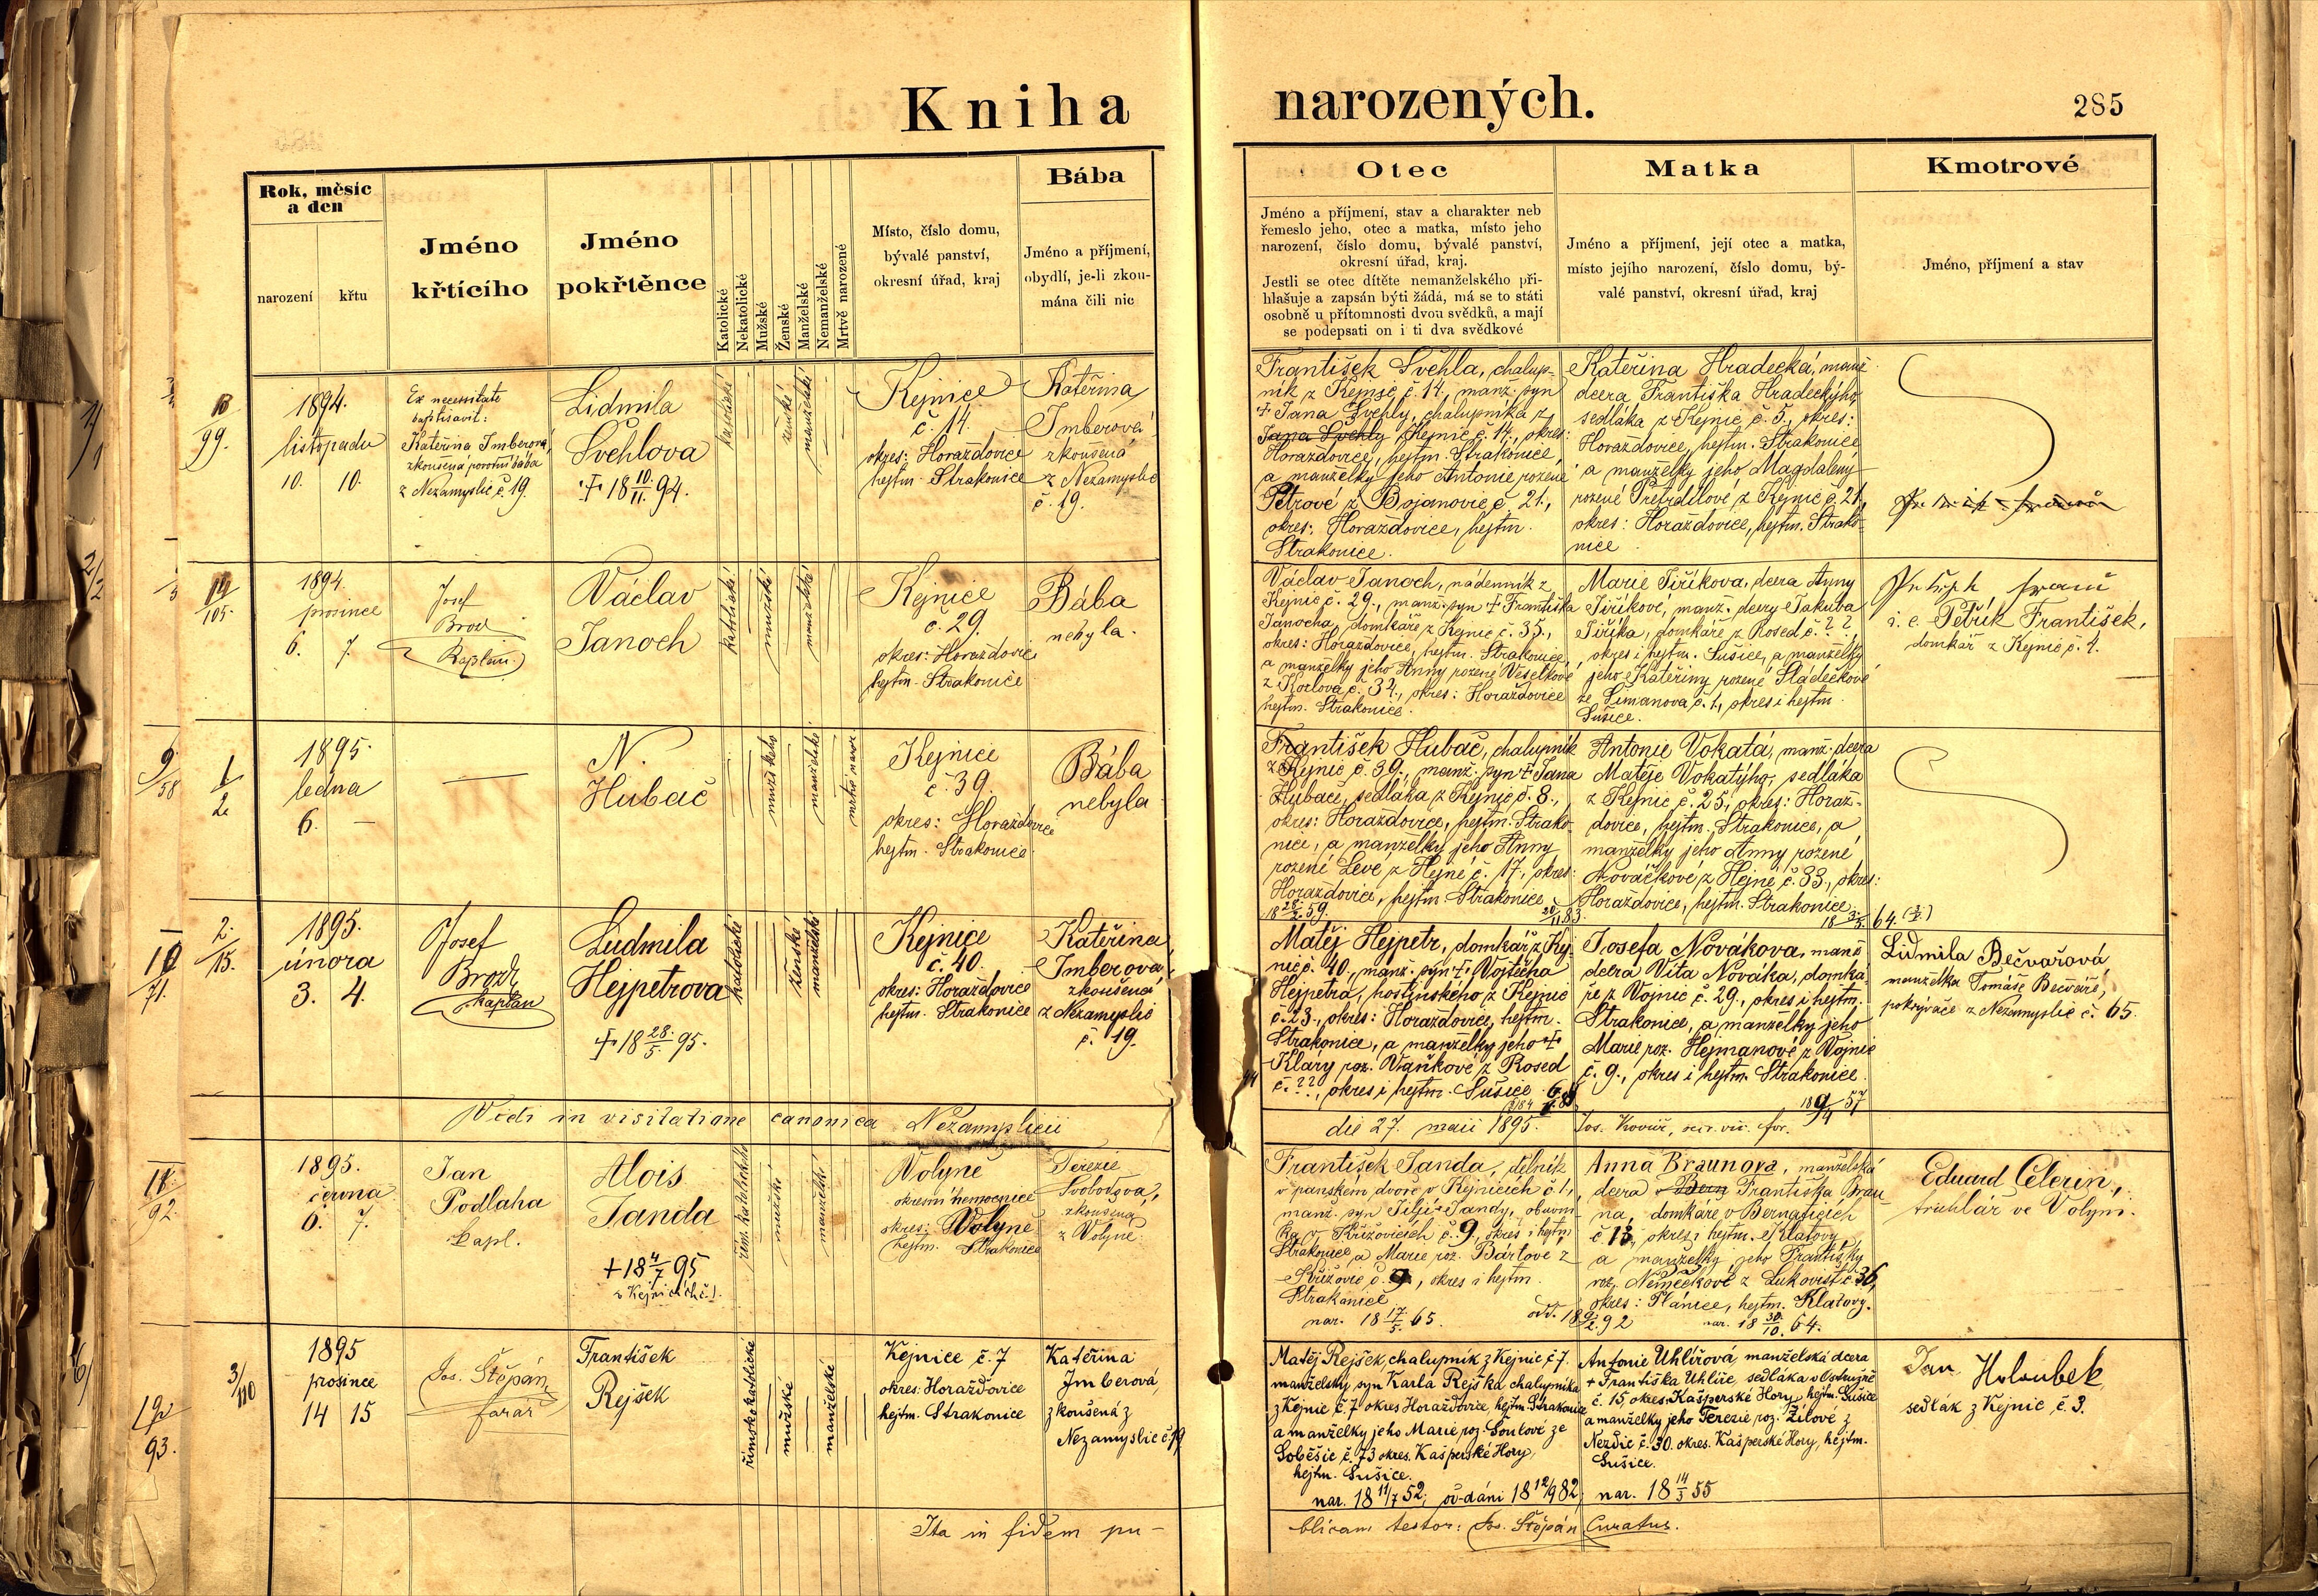 Kniha narozených.
285
Rok, měsíc
a den
narození
křtu
Jméno
křtícího
Jméno
pokřtěnce
Katolické
Nekatolické
Mužské
Ženské
Manželské
Nemanželské
Mrtvě narozené
Místo, číslo domu,
bývalé panství,
okresní úřad, kraj
Bába
Jméno a příjmení,
obydlí, je-li zkou-
mána čili nic
Otec
Jméno a příjmení, stav a charakter neb
řemeslo jeho, otec a matka, místo jeho
narození, číslo domu, bývalé panství,
okresní úřad, kraj.
Jestli se otec dítěte nemanželského při-
hlašuje a zapsán býti žádá, má se to státi
osobně u přítomnosti dvou svědků, a mají
se podepsati on i ti dva svědkové
Matka
Jméno a příjmení, její otec a matka,
místo jejího narození, číslo domu, bý-
valé panství, okresní úřad, kraj
Kmotrové
Jméno, příjmení a stav
99.
1894.
listopadu
10. 10.
Ex necessitate
baptisavit:
Kateřina Imberová,
zkoušená porodní bába
z Nezamyslic č. 19.
Lidmila
Švehlova
+ 18 10/11. 94.
katolické
ženské
manželské
Kejnice
č. 14.
okres: Horažďovice
hejtm. Strakonice
Kateřina
Imberová
zkoušená
z Nezamyslic
č. 19.
František Švehla, chalup-
ník z Kejnic č. 14., manž. syn
+ Jana Švehly, chalupníka z
Jana Švehly Kejnic č. 14., okres:
Horažďovice, hejtm. Strakonice,
a manželky jeho Antonie rozené
Petrové z Bojanovic č. 21.,
okres: Horažďovice, hejtm.
Strakonice.
Kateřina Hradecká, manž.
dcera Františka Hradeckýho,
sedláka z Kejnic č. 5., okres:
Horažďovice, hejtm. Strakonice
a manželky jeho Magdaleny
rozené Pretrdlové z Kejnic č. 21.,
okres: Horažďovice, hejtm. Strako-
nice
105.
1894.
prosince
6. 7
Josef
Brod
Kaplan
Václav
Janoch
katolické
mužské
manželské
Kejnice
č. 29.
okres: Horažďovice
hejtm. Strakonice
Bába
nebyla.
Václav Janoch, nádenník z
Kejnic č. 29., manž. syn + Františka
Janocha, domkáře z Kejnic č. 35.,
okres: Horažďovice, hejtm. Strakonice,
a manželky jeho Anny rozené Veselkové
z Kozlova č. 34., okres: Horažďovice
hejtm. Strakonice.
Marie Jiříkova, dcera Anny
Jiříkové, manž. dcery Jakuba
Jiříka, domkáře z Rosed č. ??,
okres i hejtm. Sušice, a manželky
jeho Kateřiny rozené Sládečkové
ze Šimanova č. 1, okres i hejtm.
Sušice.
i. e. Petřík František,
domkář z Kejnic č. 4.
9/58
1/2
1895.
ledna
6. —
N.
Hubač
mužského
manželské
mrtvě naroz.
Kejnice
č. 39.
okres: Horažďovice
hejtm. Strakonice
Bába
nebyla
František Hubač, chalupník
z Kejnic č. 39., manž. syn + Jana
Hubače, sedláka z Kejnic č. 8.,
okres: Horažďovice, hejtm. Strako-
nice, a manželky jeho Anny
rozené Levé z Hejné č. 17., okres:
Horažďovice, hejtm. Strakonice
Antonie Vokatá, manž. dcera
Matěje Vokatýho, sedláka
z Kejnic č. 25., okres: Horaž-
dovice, hejtm. Strakonice, a
manželky jeho Anny rozené
Nováčkové z Hejné č. 33., okres:
Horažďovice, hejtm. Strakonice.
10/71.
2./15.
1895.
února
3. 4.
Josef
Brodz
kaplan
Ludmila
Hejpetrova
+ 18 28./5. 95.
katolické
ženské
manželské
Kejnice
č. 40.
okres: Horažďovice
hejtm. Strakonice
Kateřina
Imberová
zkoušená
z Nezamyslic
č. 19.
Matěj Hejpetr, domkář z Kej-
nic č. 40., manž. syn + Vojtěcha
Hejpetra, hostinského z Kejnic
č. 23., okres: Horažďovice, hejtm.
Strakonice, a manželky jeho +
Kláry roz. Vaňkové z Rosed
č. ??, okres i hejtm. Sušice
Josefa Nováková, manž.
dcera Víta Nováka, domká-
ře z Vojnic č. 29., okres i hejtm.
Strakonice, a manželky jeho
Marie roz. Hejmanové z Vojnic
č. 9., okres i hejtm. Strakonice.
18 9/4 57
Lidmila Bečvářová,
manželka Tomáše Bečváře,
pokrývače z Nezamyslic č. 65.
Vidi in visitatione canonica Nezamyslicii
die 27. maii 1895.
92.
1895.
června
6. 7.
Jan
Podlaha
kapl.
Alois
Janda
+ 18 4/7 95
v Kejnicích č. 1.
řím. katolického
mužské
manželské
Volyně
okresní nemocnice
okres: Volyně
hejtm. Strakonice
Terezie
Svobodová,
zkoušená
z Volyně.
František Janda, dělník
v panském dvoře v Kejnicích č. 1.,
manž. syn Jiljí Jandy, obuvní-
ka v Křižovicích č. 9., okres i hejtm.
Strakonice a Marie roz. Bártové z
Křižovic č. 9., okres i hejtm.
Strakonice
nar. 18 17/5. 65.
odd. 18 9/2. 92
Anna Braunova, manželská
dcera Františka Brau-
na, domkáře v Bernaticích
č. 13., okres i hejtm. Klatovy,
a manželky jeho Františky
roz. Němečkové z Lukoviště č. 36,
okres: Plánice, hejtm. Klatovy.
nar. 18 30./10. 64.
Eduard Celerin,
truhlář ve Volyni.
93.
3/110
1895
prosince
14 15
Jos. Štěpán,
farář
František
Rejšek
římskokatolické
mužské
manželské
Kejnice č. 7
okres: Horažďovice
hejtm. Strakonice
Kateřina
Imberová,
zkoušená z
Nezamyslic č. 19
Matěj Rejšek, chalupník z Kejnic č. 7.
manželský syn Karla Rejška chalupníka
z Kejnic č. 7 okres Horažďovice, hejtm. Strakonice
a manželky jeho Marie roz. Soulové ze
Soběšic č. 73 okres. Kašperské Hory,
hejtm. Sušice.
nar. 18 11/7 52; oddáni 18 12/9 82;
Antonie Uhlířová, manželská dcera
+ Františka Uhlíře, sedláka v Ostružně
č. 15, okres. Kašperské Hory, hejtm. Sušice
a manželky jeho Terezie roz. Žílové z
Nezdic č. 30. okres. Kašperské Hory, hejtm.
Sušice.
nar. 18 14/3 55
Jan Holoubek
sedlák z Kejnic č. 3.
Ita in fidem pu-
blicam testor: Jos. Štěpán Curatus.